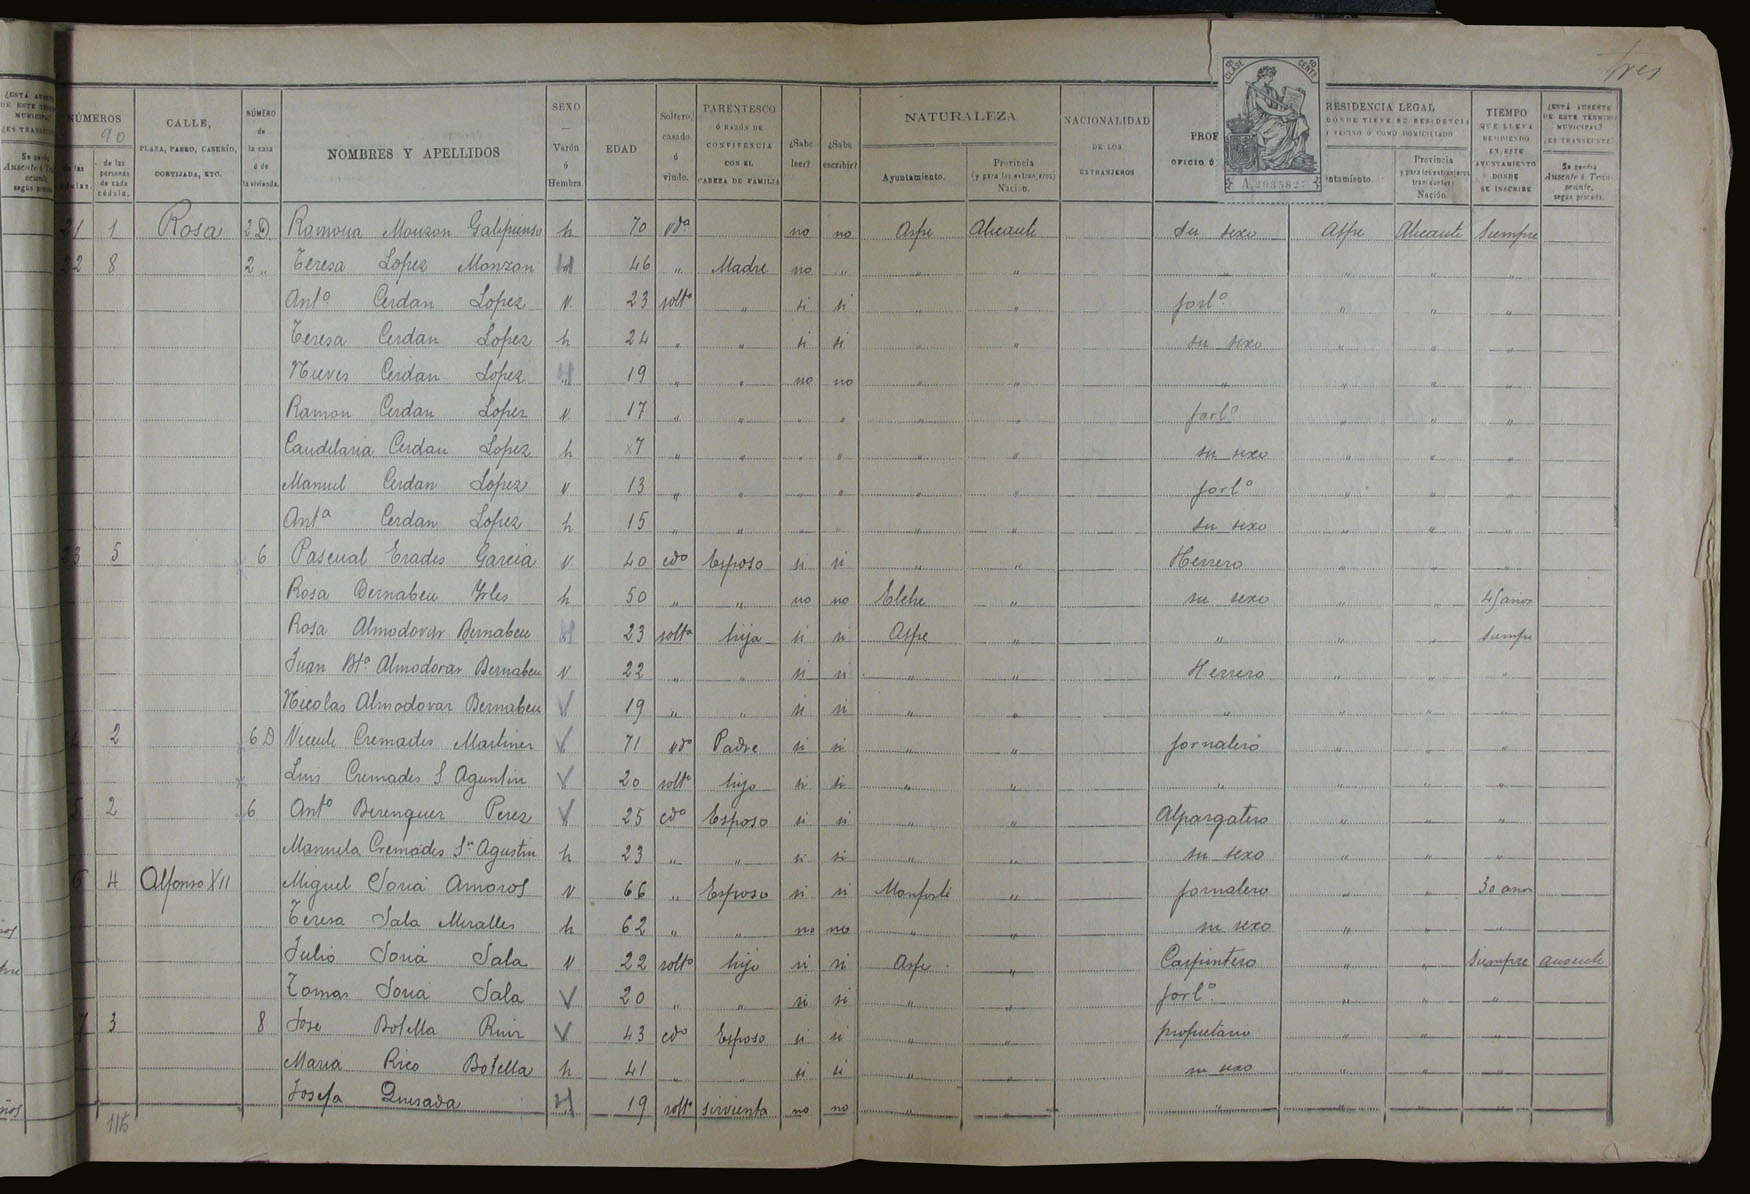 tres
¿ESTÁ AUSENTE DE ESTE TÉRMINO MUNICIPAL? ¿ES TRANSEUNTE?
Ausente ó Transeunte, según proceda.
NÚMEROS
90
de las cédulas.
de las personas de cada cédula.
CALLE, PLAZA, PASEO, CASERÍO, CORTIJADA, ETC.
NÚMERO de la casa ó de la vivienda.
NOMBRES Y APELLIDOS
SEXO — Varón ó Hembra
EDAD
Soltero, casado ó viudo.
PARENTESCO Ó RAZÓN DE CONVIVENCIA CON EL CABEZA DE FAMILIA
¿Sabe leer?
¿Sabe escribir?
NATURALEZA
Ayuntamiento.
Provincia (y para los extranjeros) Nación.
NACIONALIDAD DE LOS EXTRANJEROS
PROF
OFICIO Ó
CLASE 10 CENTS
A.2935827
RESIDENCIA LEGAL
DONDE TIENE SU RESIDENCIA
VECINO Ó COMO DOMICILIADO
ntamiento.
Provincia y para los extranjeros transeuntes: Nación.
TIEMPO QUE LLEVA RESIDIENDO EN ESTE AYUNTAMIENTO DONDE SE INSCRIBE
¿ESTÁ AUSENTE DE ESTE TÉRMINO MUNICIPAL? ¿ES TRANSEUNTE? Se pondrá Ausente ó Transeunte, según proceda.
21 1 Rosa 2 D Ramona Monzon Galipienso h 70 vda no no Aspe Alicante su sexo Aspe Alicante Siempre
22 8 2 „ Teresa Lopez Monzon H 46 „ Madre no „ „ „ „ „ „ „
Antº Cerdan Lopez v. 23 soltº „ si si „ „ jorlº „ „ „
Teresa Cerdan Lopez h 24 „ „ si si „ „ su sexo „ „ „
Nieves Cerdan Lopez H 19 „ „ no no „ „ „ „ „ „
Ramon Cerdan Lopez v. 17 „ „ „ „ „ „ jorlº „ „ „
Candelaria Cerdan Lopez h x7 „ „ „ „ „ „ su sexo „ „ „
Manuel Cerdan Lopez v 13 „ „ „ „ „ „ jorlº „ „ „
Antª Cerdan Lopez h 15 „ „ „ „ „ „ su sexo „ „ „
23 5 6 Pascual Erades Garcia v. 40 cdo Esposo si si „ „ Herrero „ „ „
Rosa Bernabeu Yrles h 50 „ „ no no Elche „ su sexo „ „ 45 años
Rosa Almodovar Bernabeu H 23 solta hija si si Aspe „ „ „ „ Siempre
Juan Btª Almodovar Bernabeu v 22 „ „ si si „ „ Herrero „ „ „
Nicolas Almodovar Bernabeu V 19 „ „ si si „ „ „ „ „ „
4 2 6 D Vicente Cremades Martinez V 71 vdo Padre si si „ „ jornalero „ „ „
Luis Cremades S. Agustin V 20 soltº hijo si si „ „ „ „ „ „
5 2 6 Antº Berenguer Perez V 25 cdo Esposo si si „ „ Alpargatero „ „ „
Manuela Cremades Sn Agustin h 23 „ „ si si „ „ su sexo „ „ „
6 4 Alfonso XII Miguel Soria Amoros v 66 „ Esposo si si Monforte „ jornalero „ „ 30 años
Teresa Sala Miralles h 62 „ „ no no „ „ su sexo „ „ „
Julio Soria Sala v 22 soltº hijo si si Aspe „ Carpintero „ „ Siempre ausente
Tomas Soria Sala V 20 „ „ si si „ „ jorlº „ „ „
7 3 8 Jose Botella Ruiz V 43 cdo Esposo si si „ „ propietario „ „ „
Maria Rico Botella h 41 „ „ si si „ „ su sexo „ „ „
Josefa Quesada H 19 solta sirvienta no no „ „ „ „ „ „
115